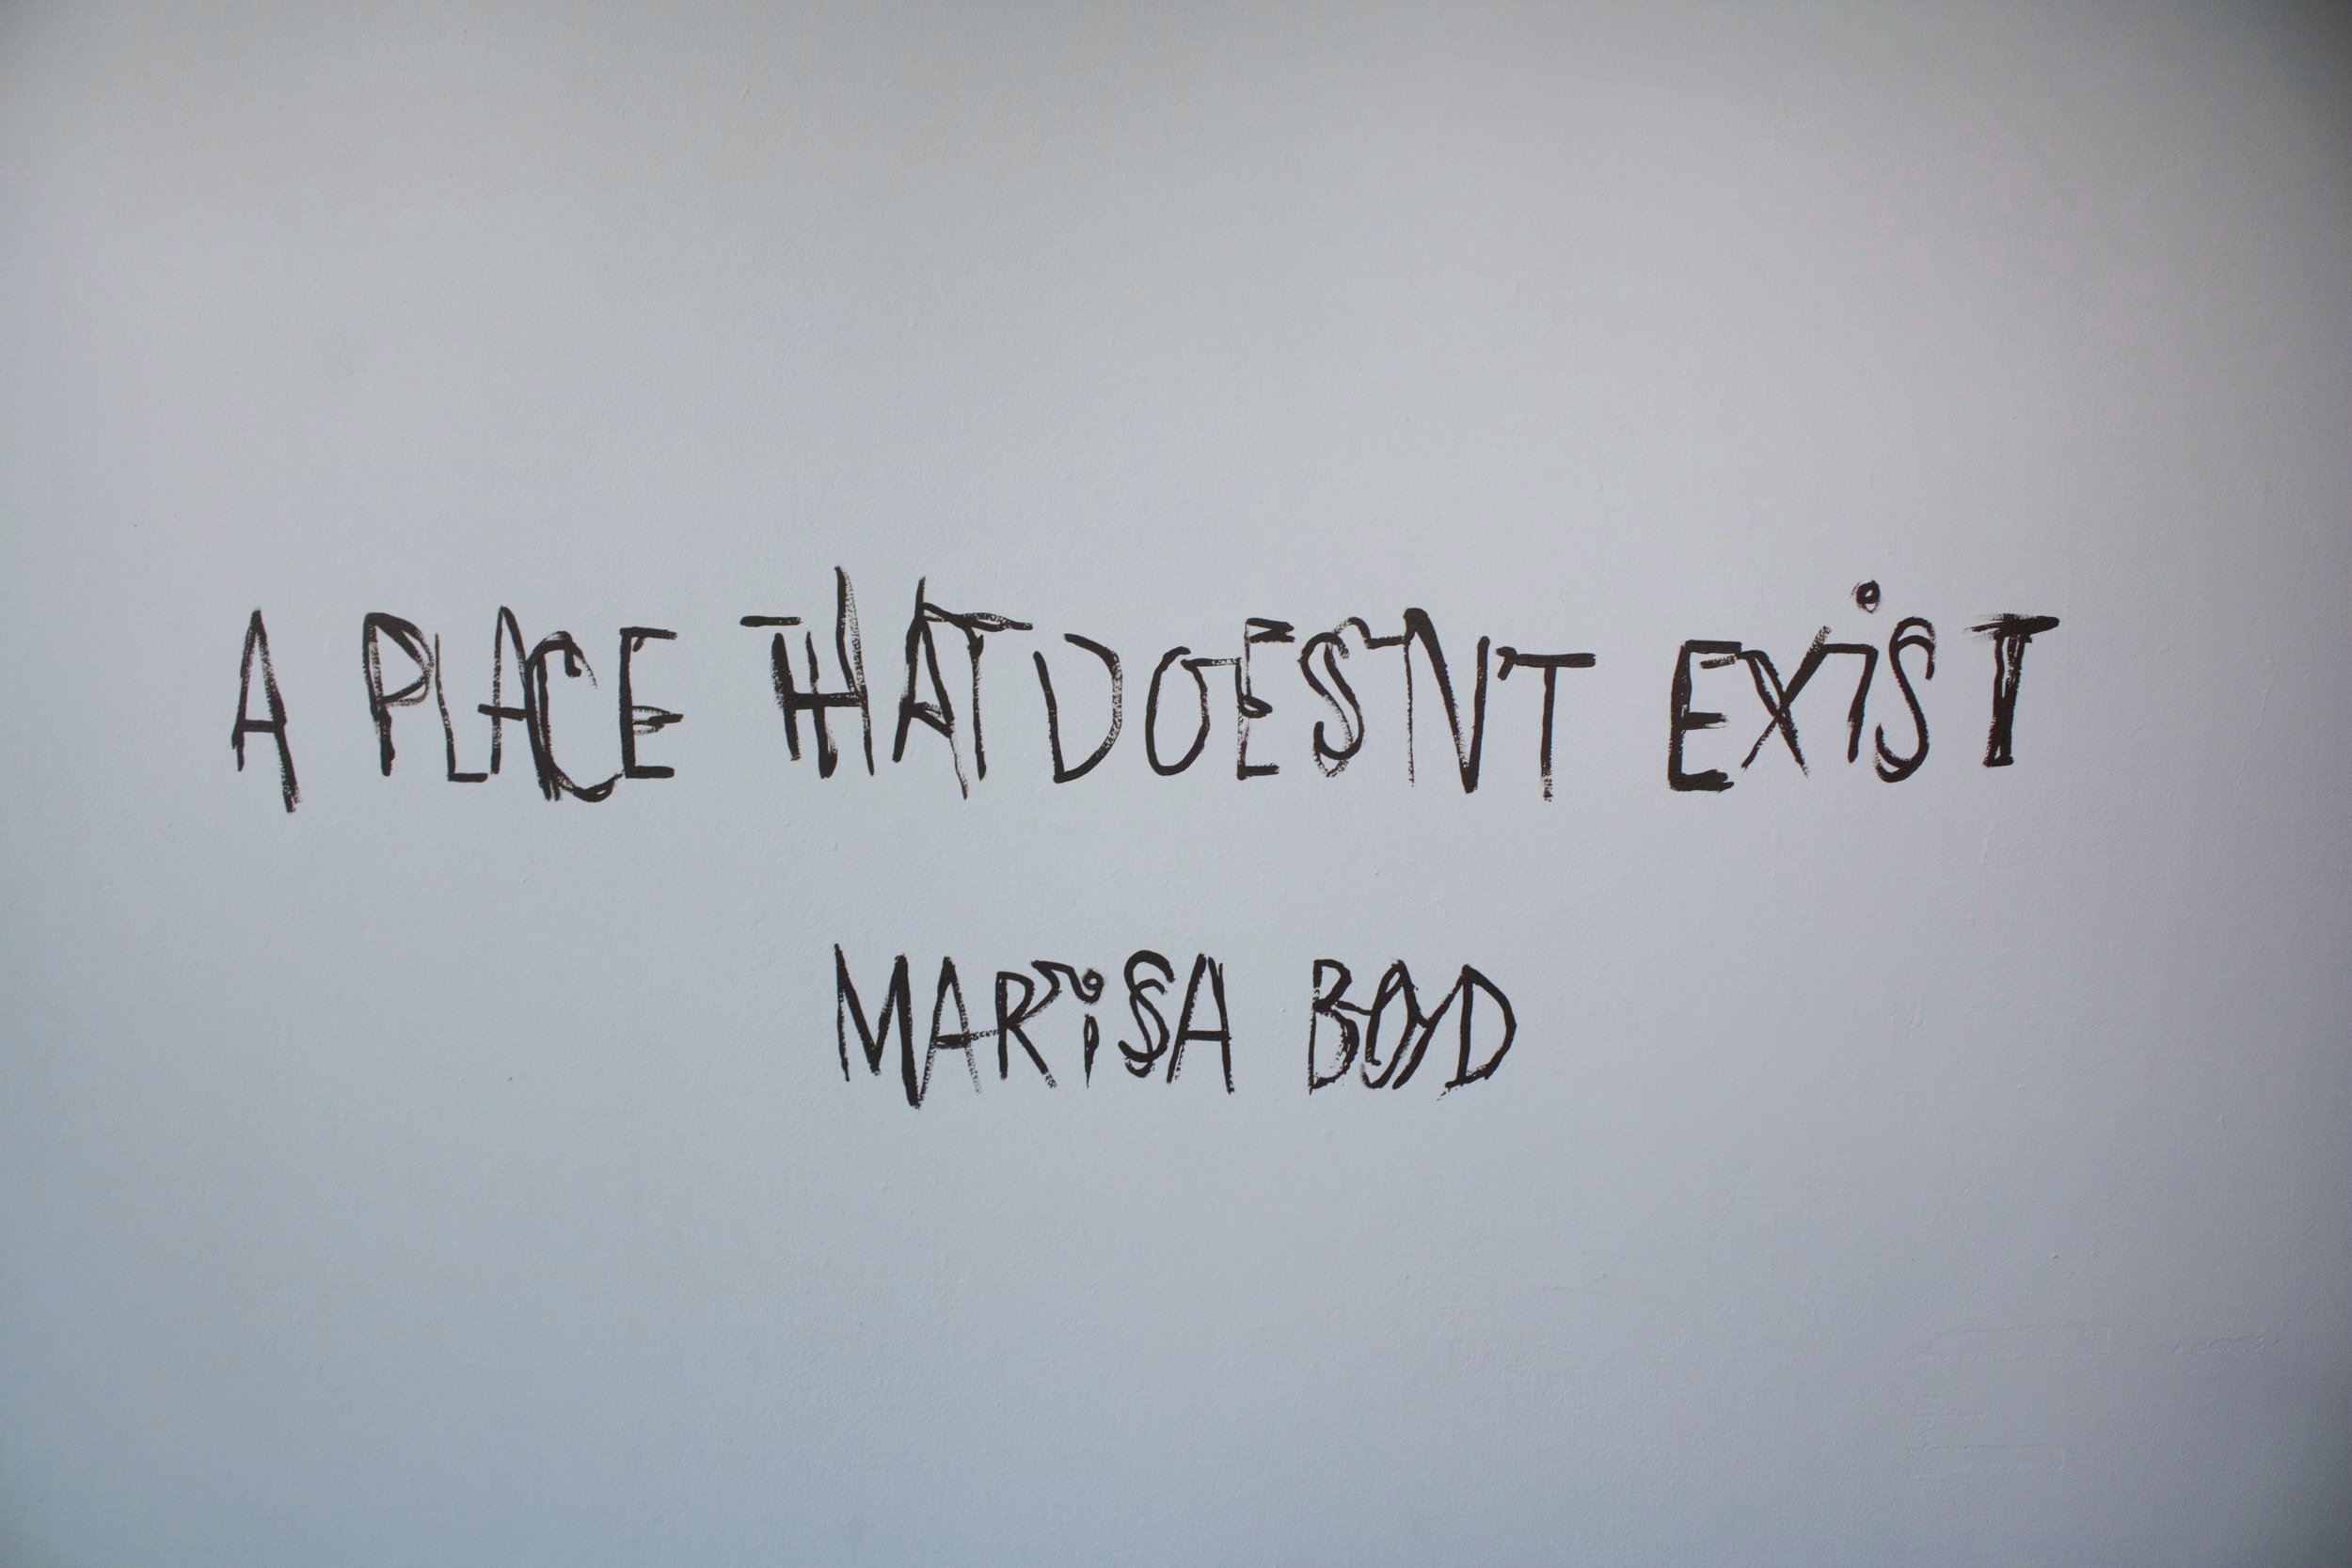 A PLACE THAT DOESN'T EXiST
MARiSA BOYD